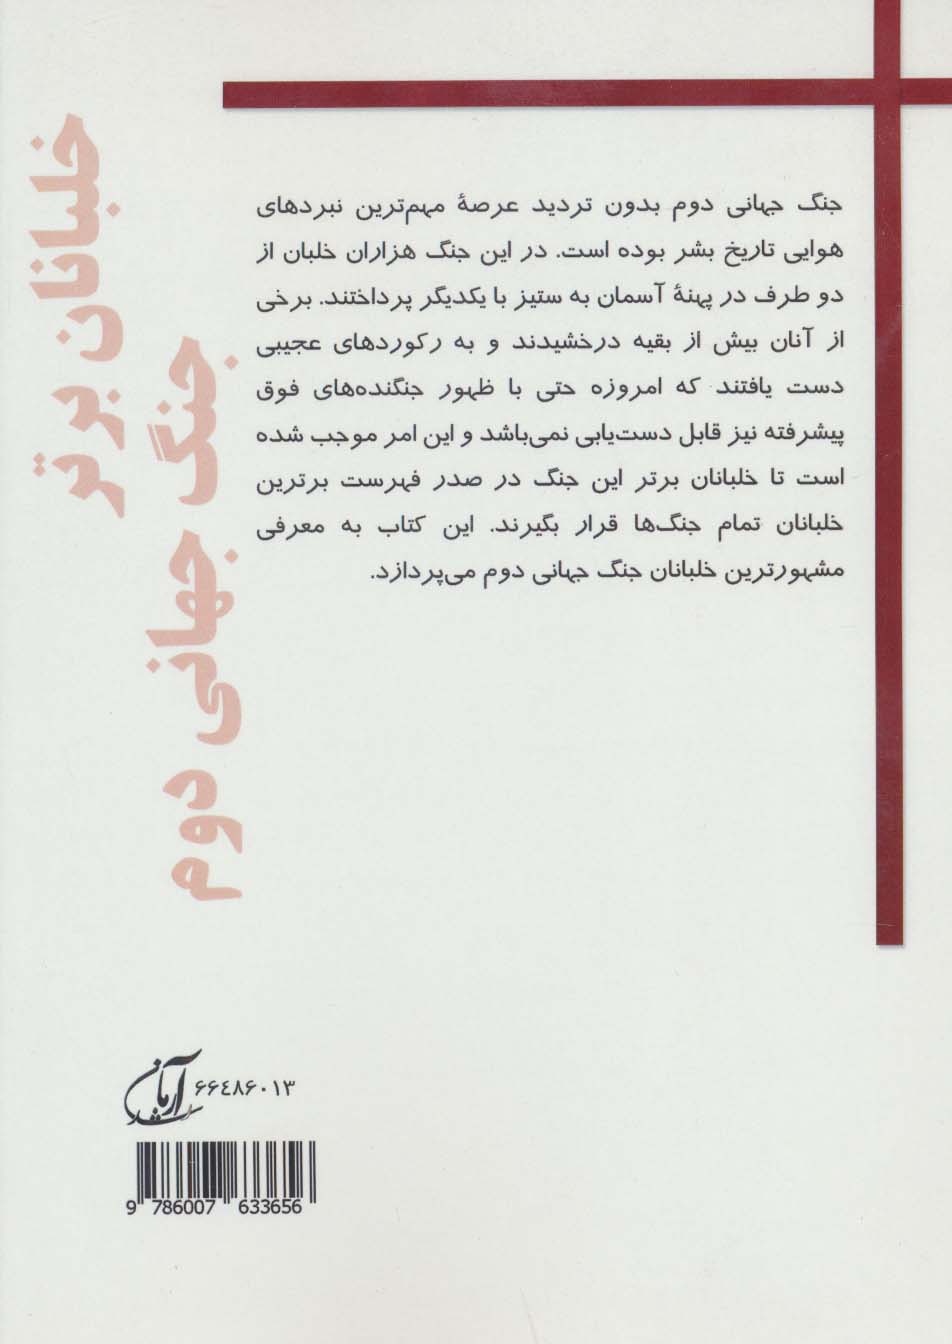 خلبانان برتر
جنگ جهانی دوم
جنگ جهانی دوم بدون تردید عرصهٔ مهم‌ترین نبردهای
هوایی تاریخ بشر بوده است. در این جنگ هزاران خلبان از
دو طرف در پهنهٔ آسمان به ستیز با یکدیگر پرداختند. برخی
از آنان بیش از بقیه درخشیدند و به رکوردهای عجیبی
دست یافتند که امروزه حتی با ظهور جنگنده‌های فوق
پیشرفته نیز قابل دست‌یابی نمی‌باشد و این امر موجب شده
است تا خلبانان برتر این جنگ در صدر فهرست برترین
خلبانان تمام جنگ‌ها قرار بگیرند. این کتاب به معرفی
مشهورترین خلبانان جنگ جهانی دوم می‌پردازد.
آرمان رشد
۶۶٤۸۶۰۱۳
9 786007 633656